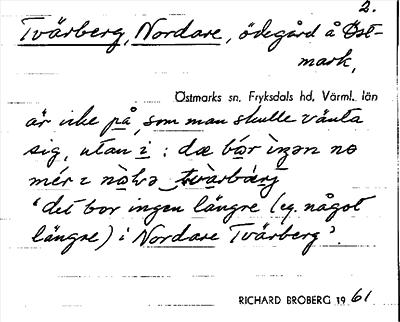 2.
Tvärberg, Nordare, ödegård å Öst-
mark,
Östmarks sn, Fryksdals hd, Värml. län
är icke på, som man skulle vänta
sig, utan i : dæ bor ingən no
mér i
"det bor ingen längre (eg. något
längre) i Nordare Tvärberg".
RICHARD BROBERG 1961